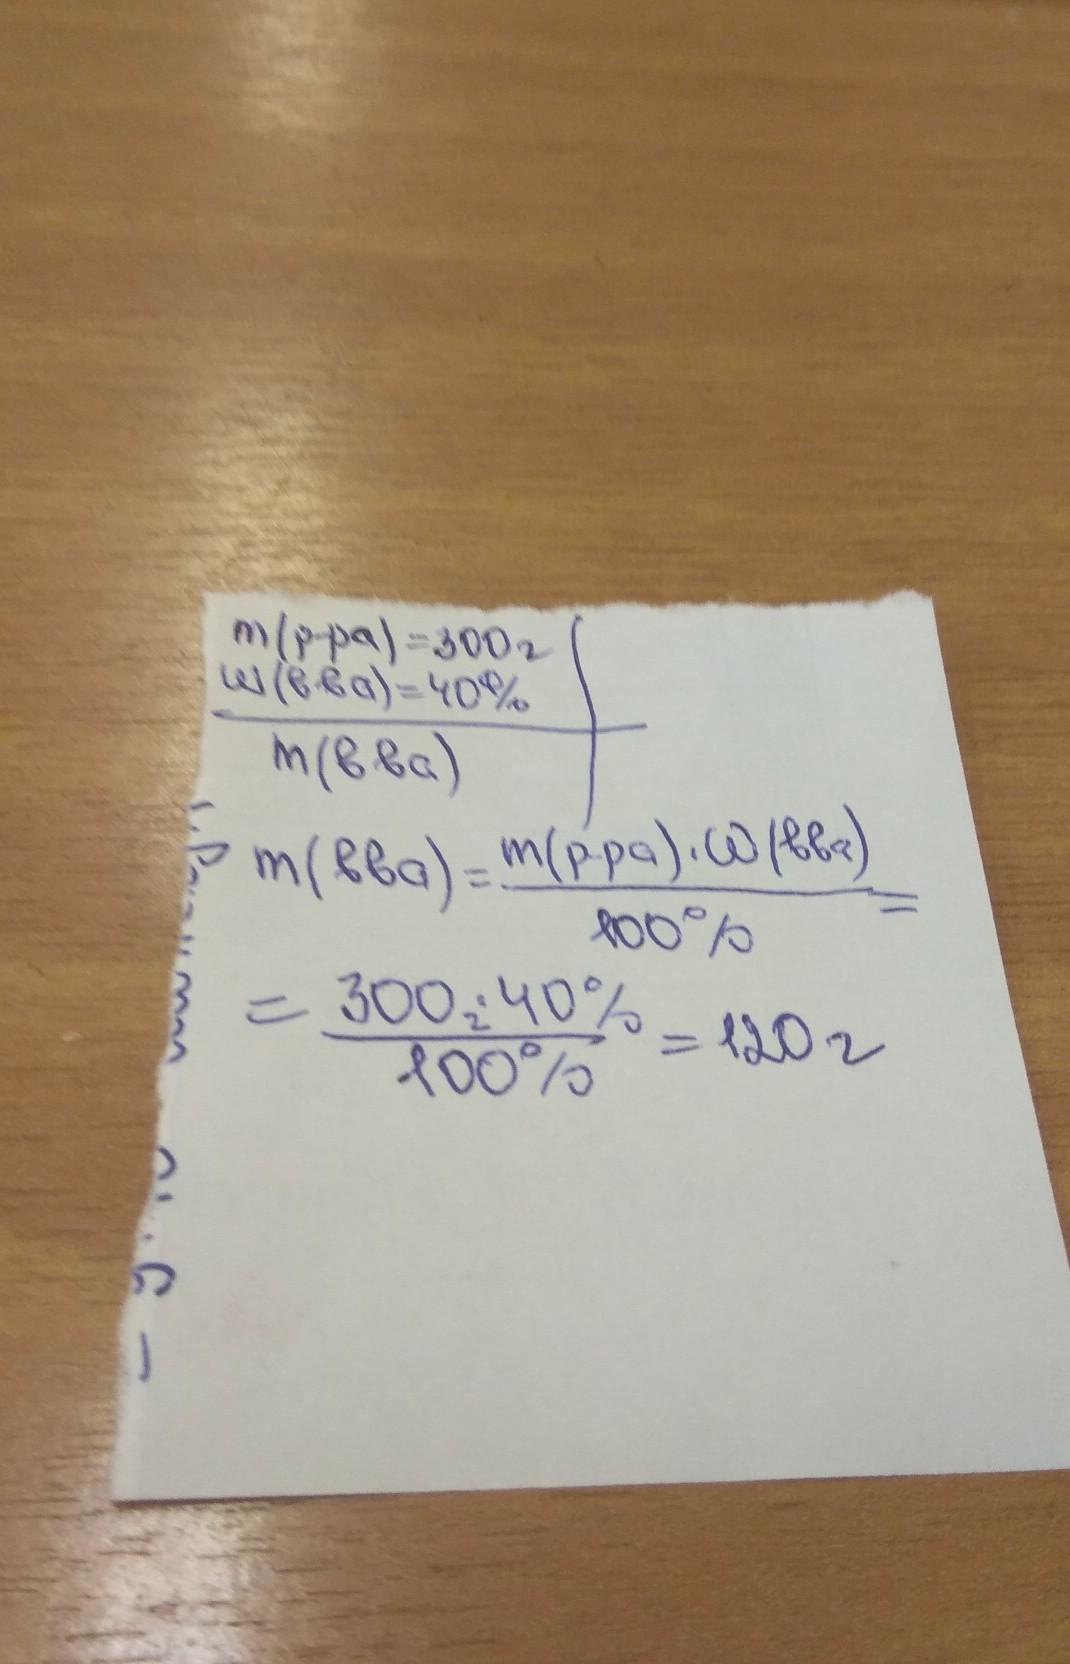 m(р-ра)=300г
ω(вва)=40%
m(вва)
m(вва)=m(р-ра)·ω(вва)/100%=
=300г·40%/100%=120г